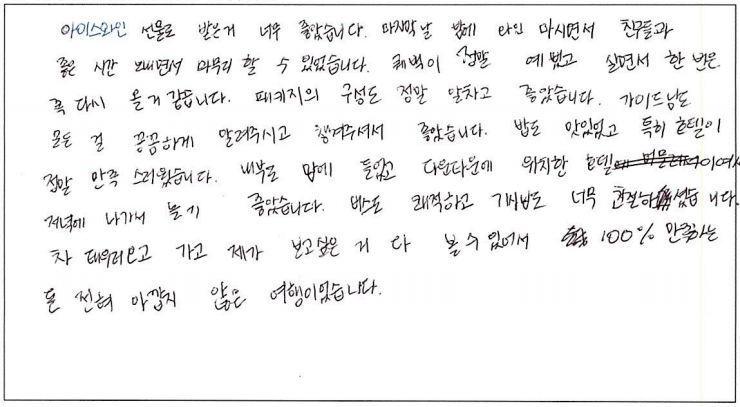 아이스와인 선물로 받은거 너무 좋았습니다. 마지막날 밤에 와인 마시면서 친구들과
좋은 시간 보내면서 마무리 할 수 있었습니다. 퀘벡이 정말 예뻤고 살면서 한 번은
꼭 다시 올거 같습니다. 패키지의 구성도 정말 알차고 좋았습니다. 가이드님도
모든 걸 꼼꼼하게 알려주시고 챙겨주셔서 좋았습니다. 밥도 맛있었고 특히 호텔이
정말 만족 스러웠습니다. 내부도 맘에 들었고 다운타운에 위치한 호텔이여서
저녁에 나가서 놀기 좋았습니다. 버스도 쾌적하고 기사님도 너무 친절하셨습니다.
차 태우러오고 가고 제가 보고싶은 거 다 볼 수 있어서 100% 만족하는
돈 전혀 아깝지 않은 여행이었습니다.